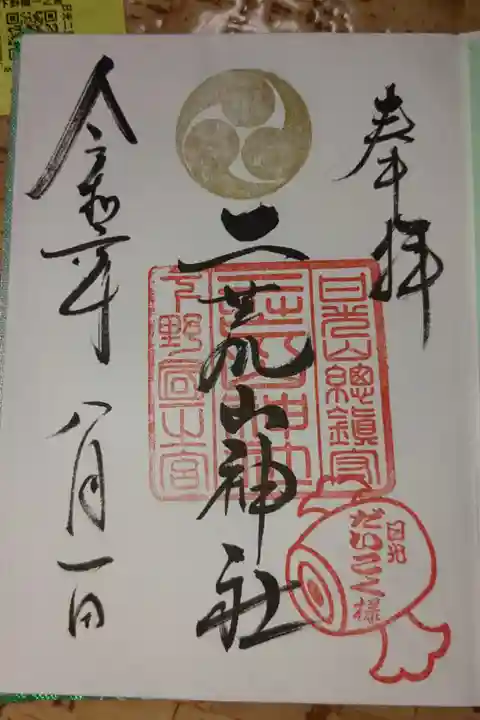 奉拝
日光山總鎮守
二荒山神社
二荒山神社
下野國一之宮
日光
だいこく様
令和年
八月一日